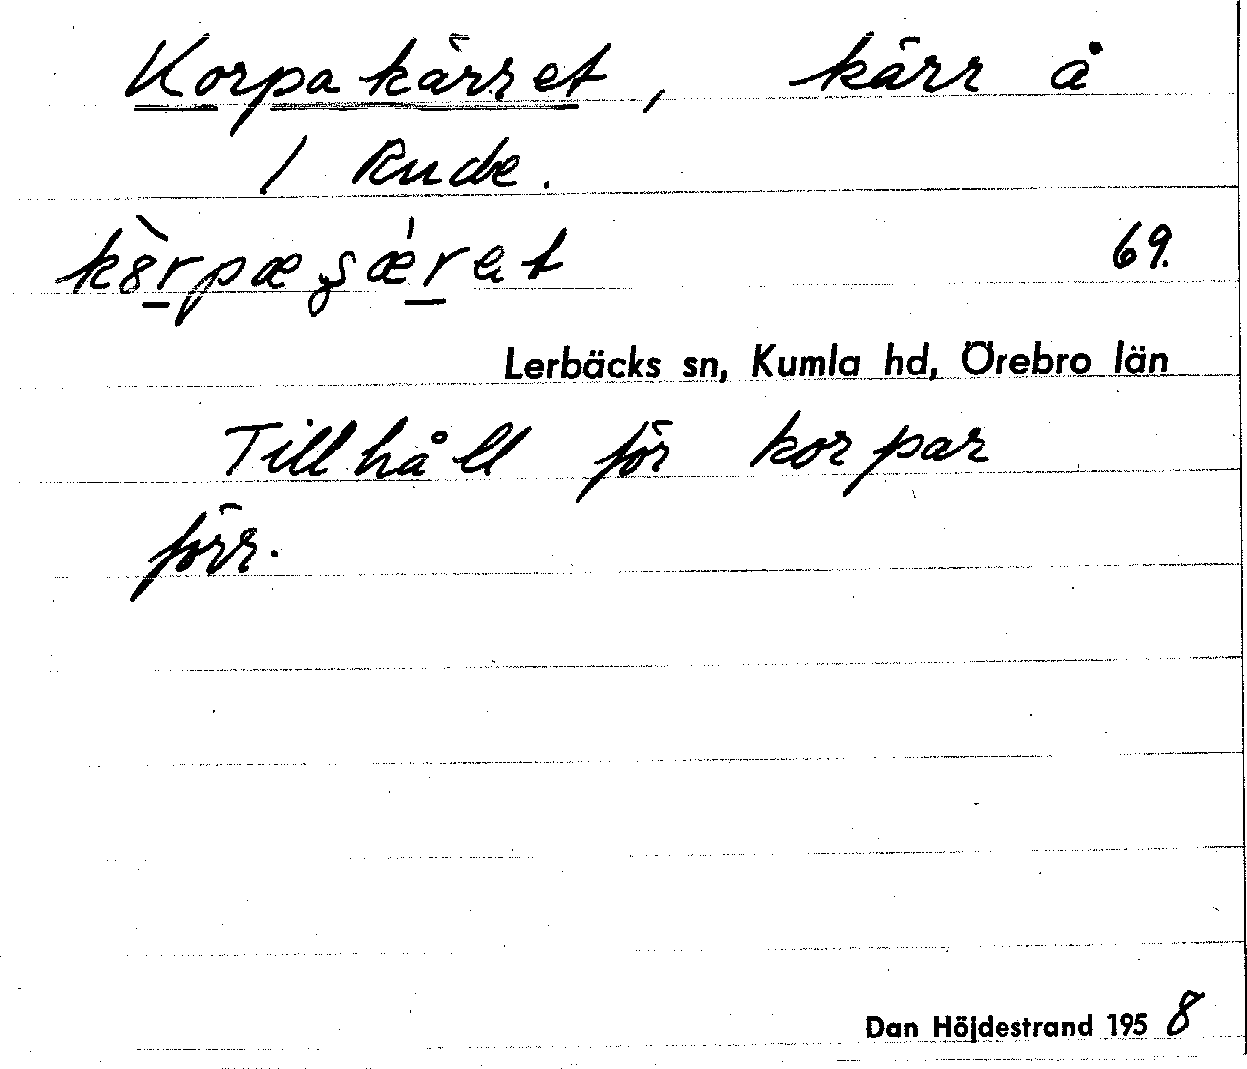 Korpakärret, kärr å
1 Rude.
kȯ̀rpæʂǽrət 69.
Lerbäcks sn, Kumla hd, Örebro län
Tillhåll för korpar
förr.
Dan Höjdestrand 1958